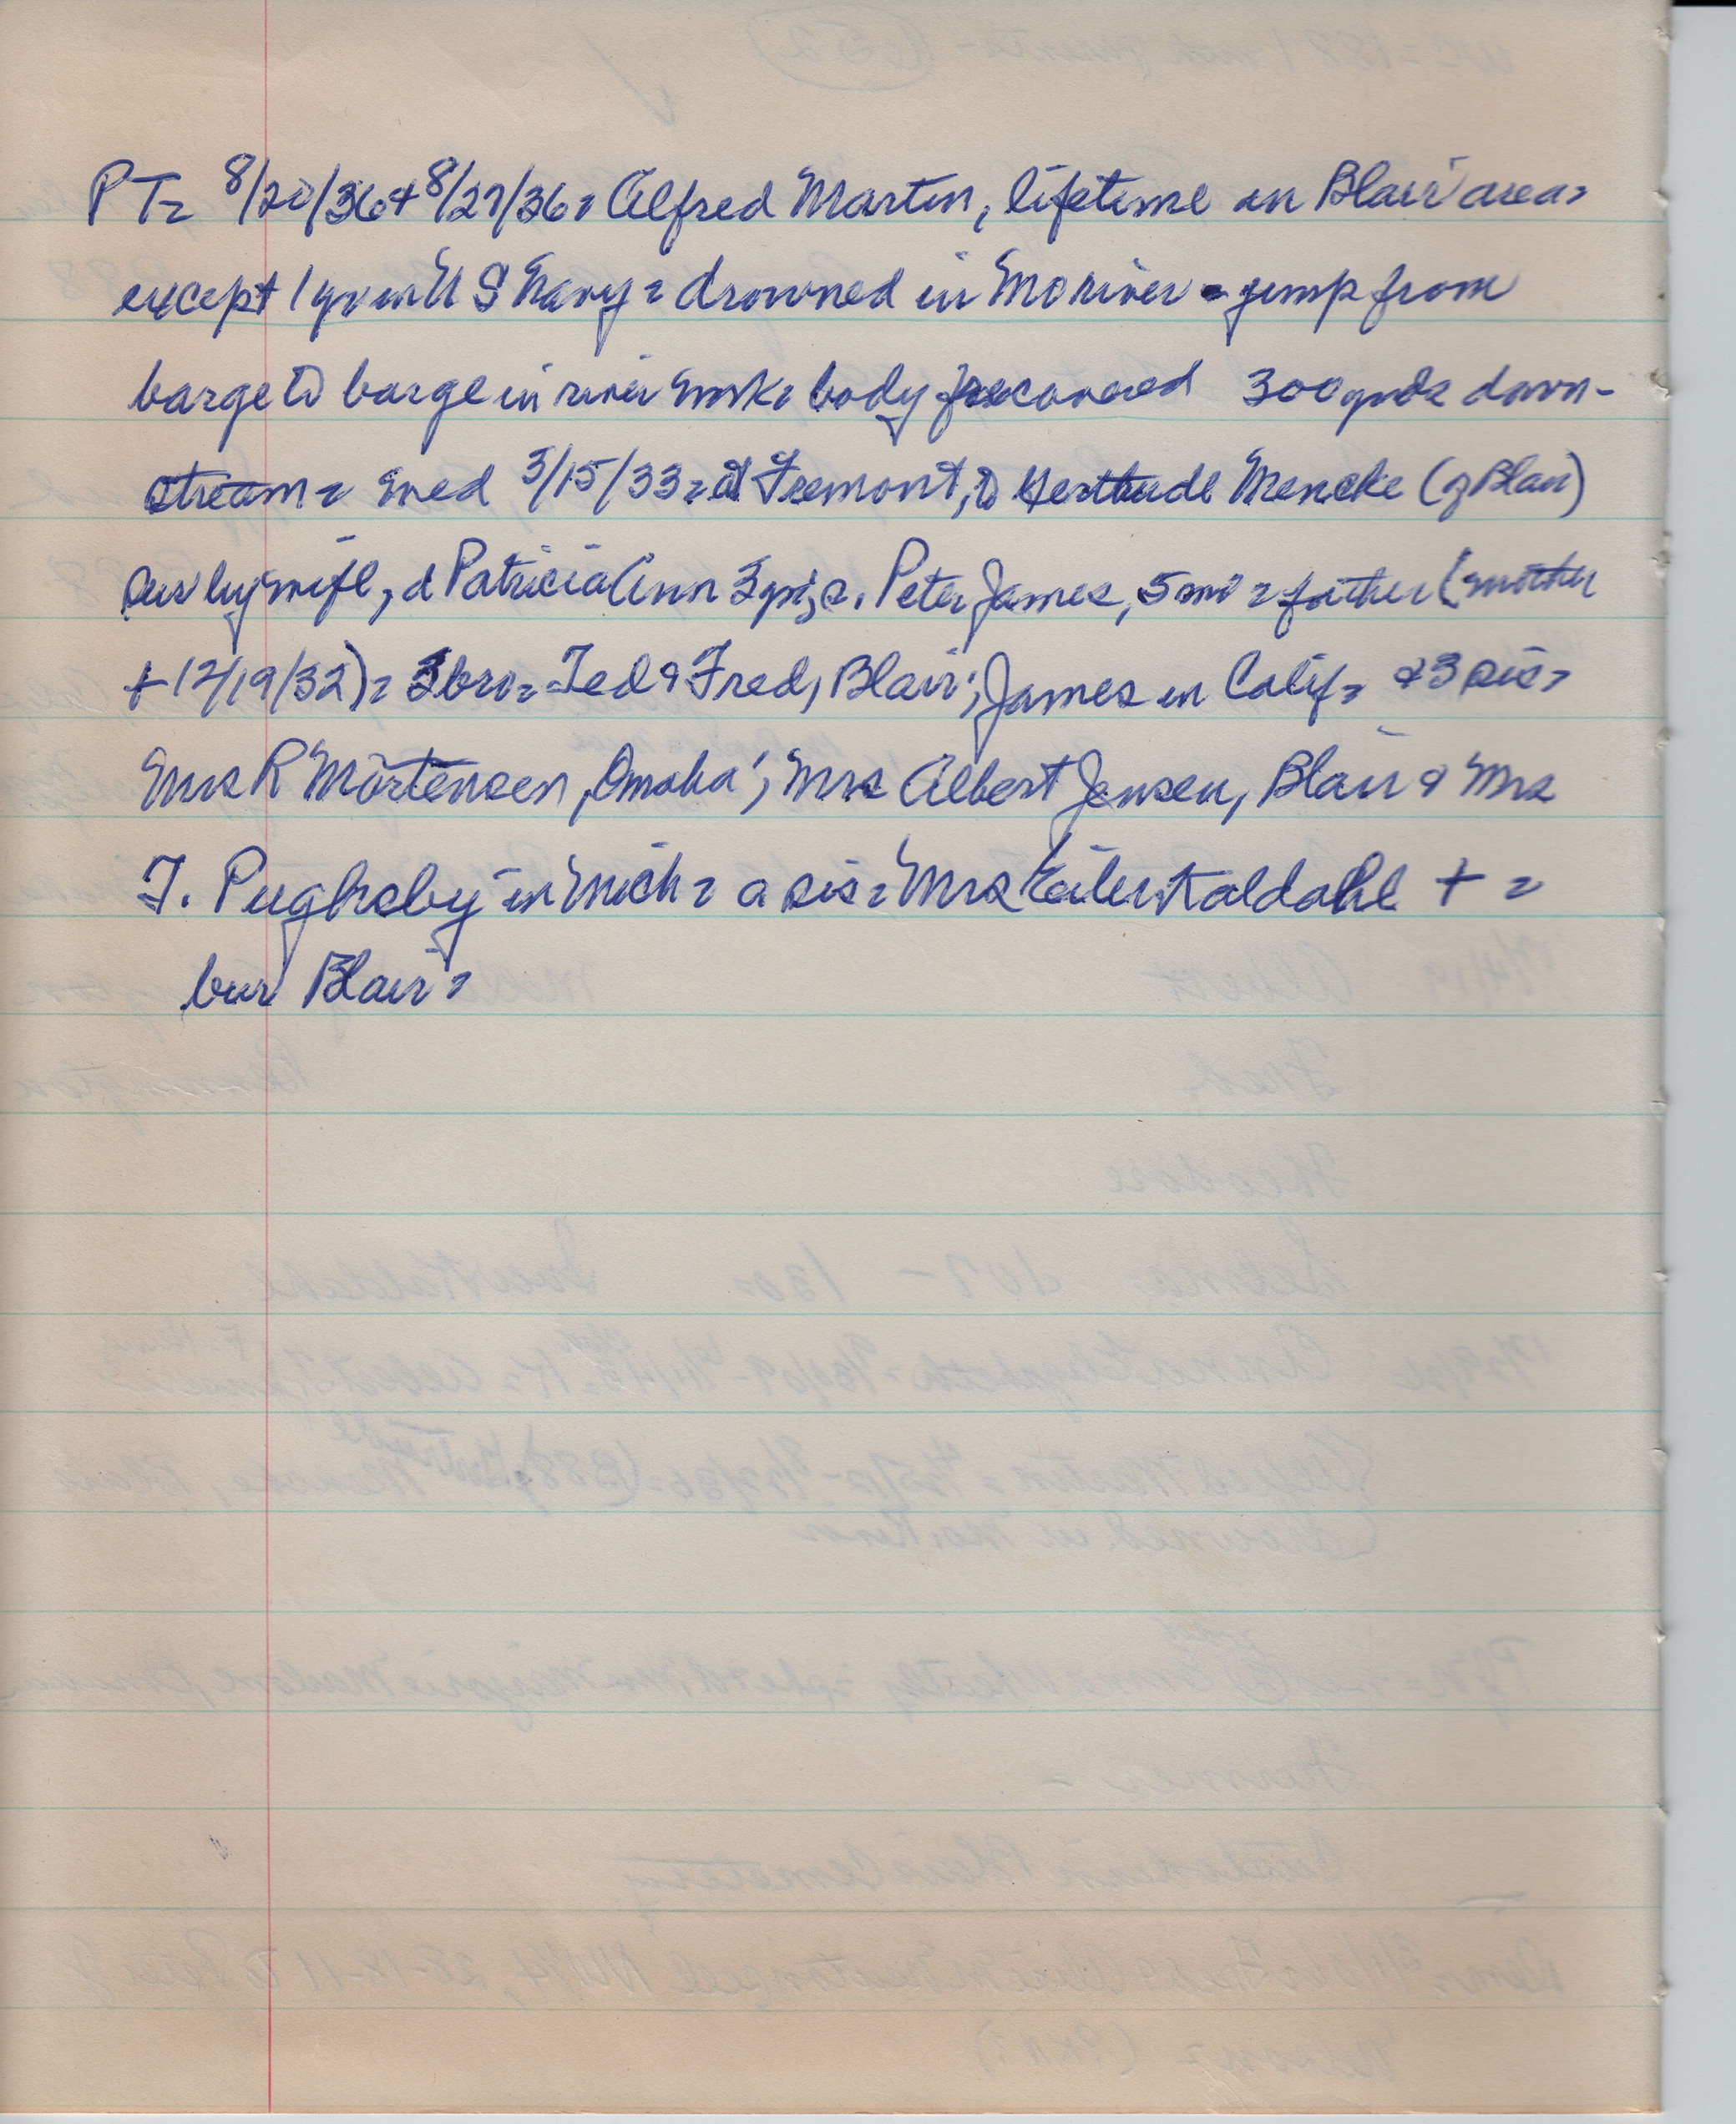 PT= 8/20/36 + 8/27/36= Alfred Martin, lifetime in Blair area=
except 1 yr in U S Navy = drowned in Mo river = jump from
barge to barge in river work= body recovered 300 yards down-
stream = med 3/15/33 = at Fremont, to Gerthude Mencke (of Blair)
sur by wife, d Patricia Ann 3 yr; s. Peter James, 5 mo = father (mother
+ 12/19/32) = 3 bro = Ted & Fred, Blair; James in Calif = & 3 sis=
Mrs R Mortensen, Omaha; Mrs Albert Jensen, Blair & Mrs
T. Pughsby in Mich = a sis = Mrs Eiler Kaldahl + =
bur Blair=